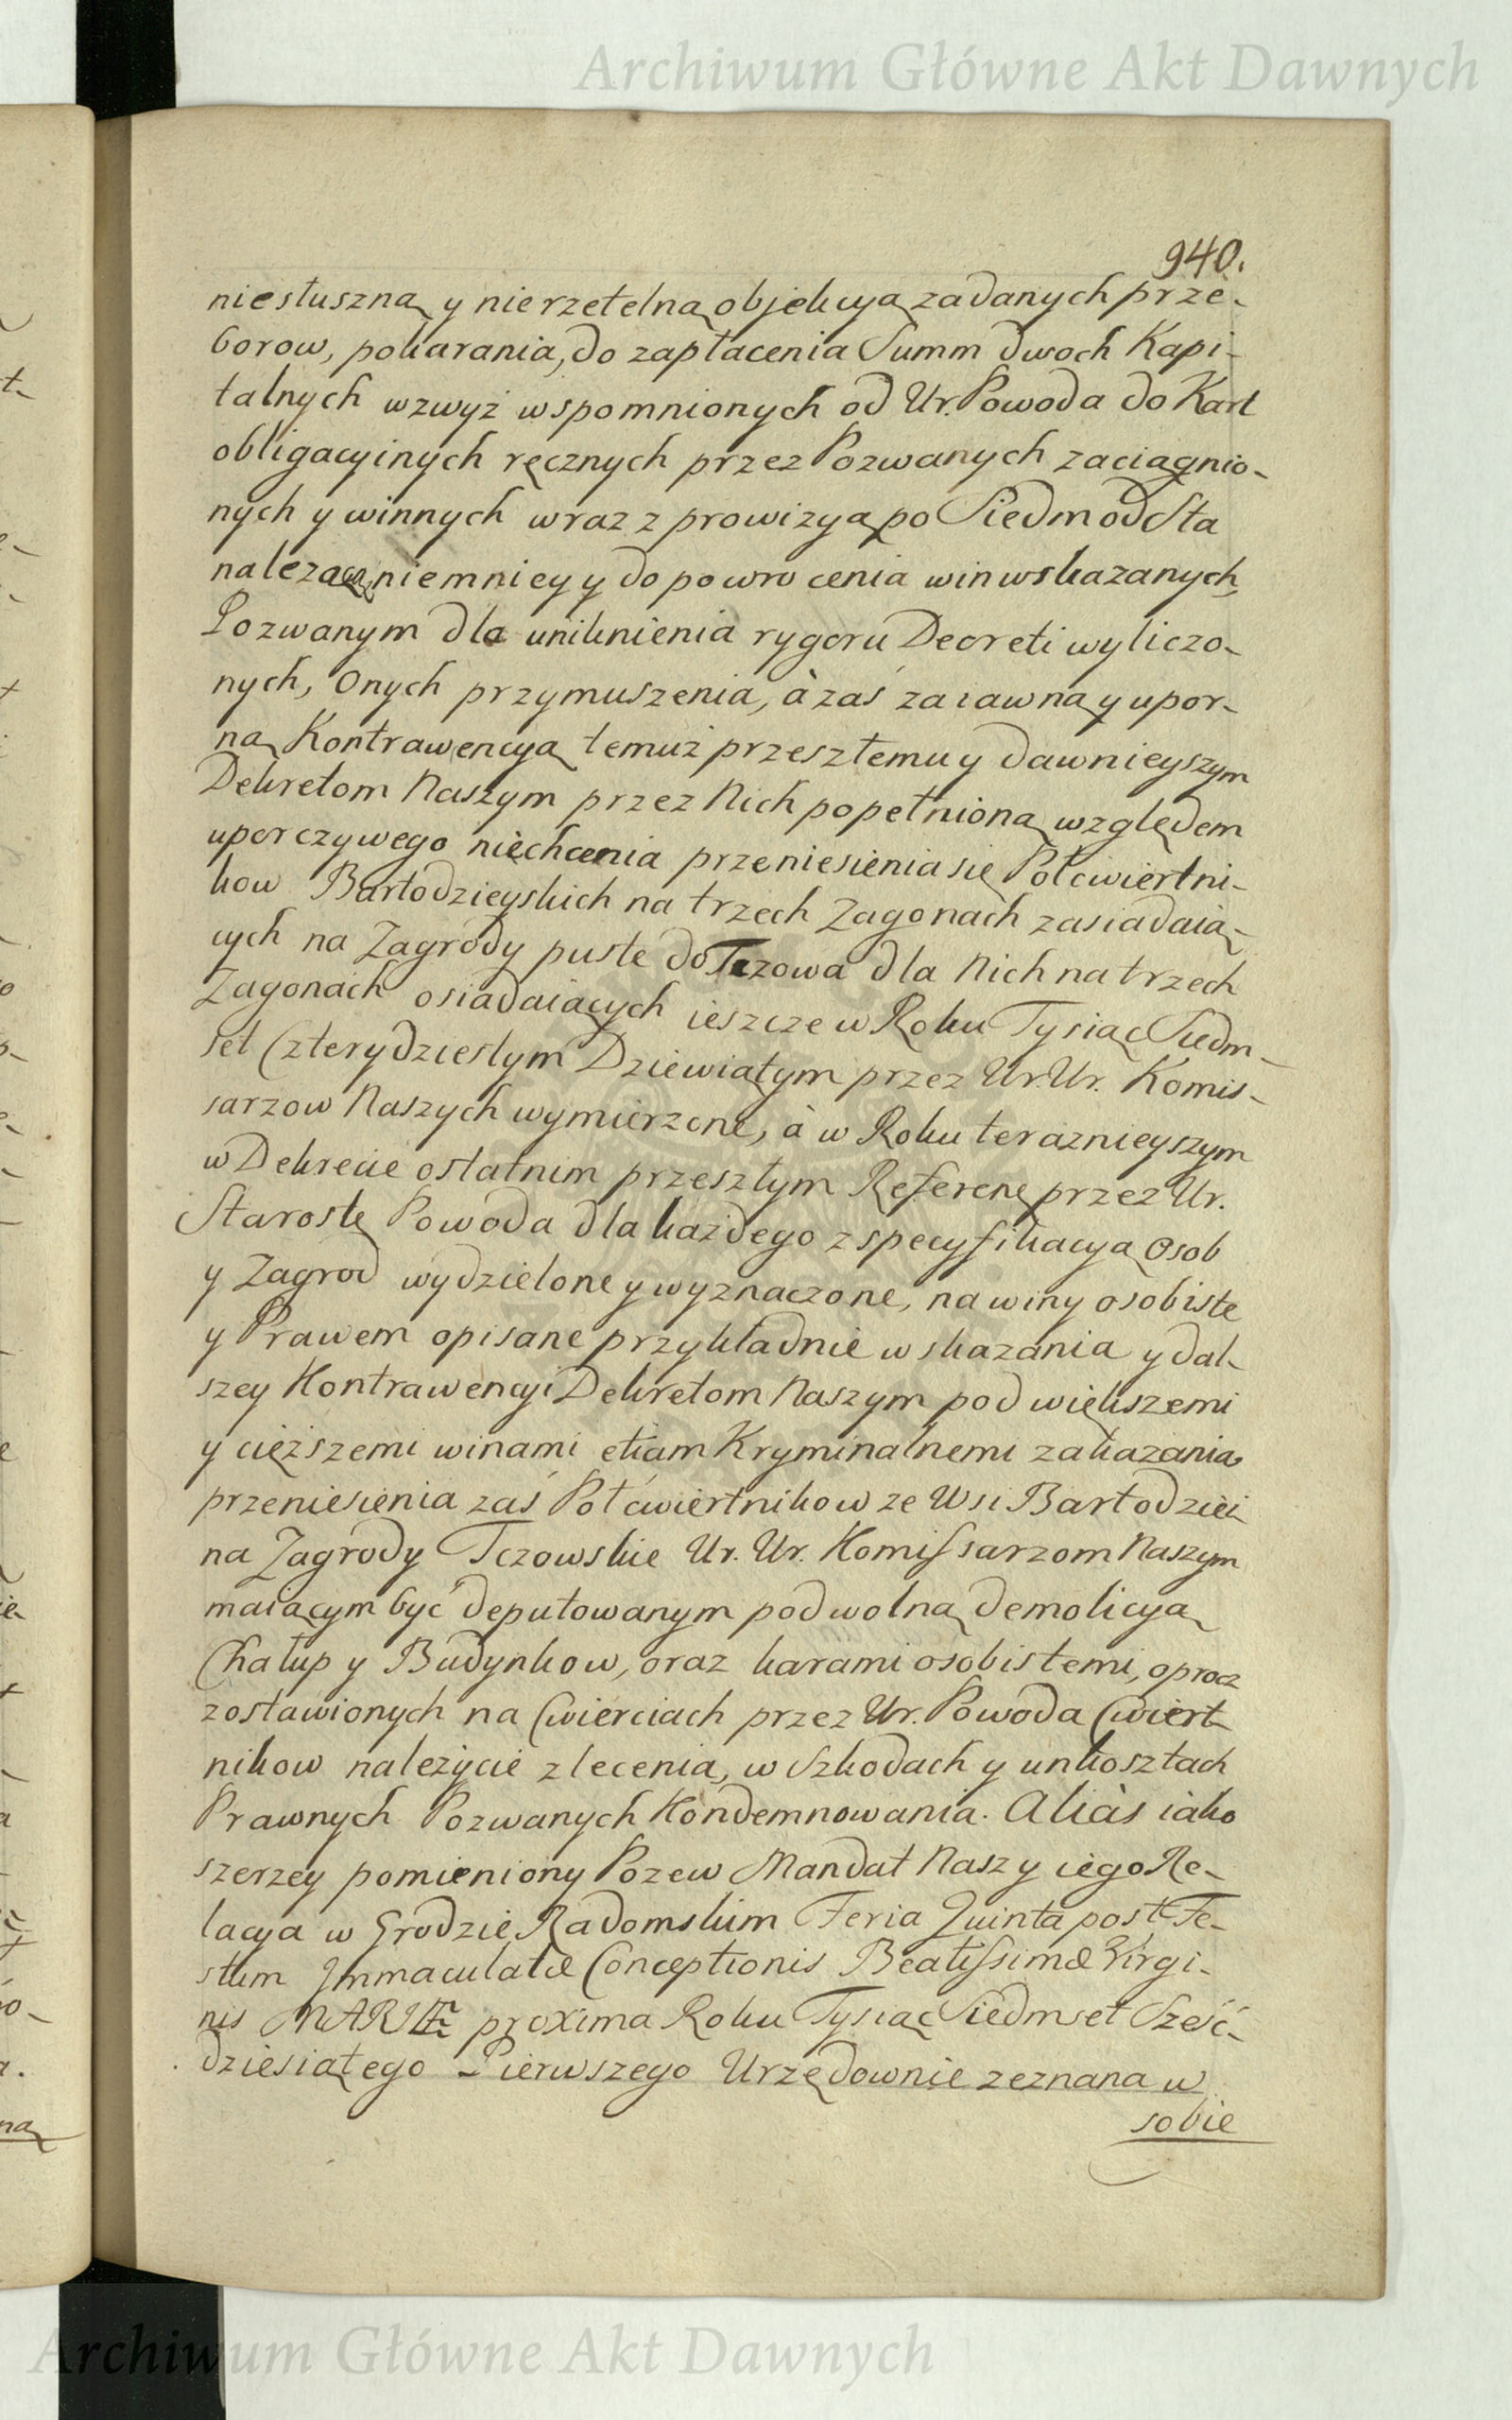 Archiwum Główne Akt Dawnych
940.
niesłuszną y nierzetelną objekcyą zadanych prze-
borow, pokarania, do zapłacenia Summ dwoch Kapi-
talnych wzwyż wspomnionych od Ur. Powoda do Kart
obligacyinych ręcznych przez Pozwanych zaciągnio-
nych y winnych wraz z prowizyą po Siedm od Sta
należącą, niemniey y do powrocenia win wskazanych,
Pozwanym dla uniknienia rygoru Decreti wyliczo-
nych, Onych przymuszenia, à zaś za iawną y upor-
ną Kontrawencyą temuż przeszłemu y dawnieyszym
Dekretom Naszym przez Nich popełnioną względem
uporczywego niechcenia przeniesienia się Połćwiertni-
kow Bartodzieyskich na trzech Zagonach zasiadaią-
cych na Zagrody puste do Tczowa dla Nich na trzech
Zagonach osiadaiących ieszcze w Roku Tysiąc Siedm-
set Czterydziestym Dziewiątym przez Ur. Ur. Komis-
sarzow Naszych wymierzone, à w Roku teraznieyszym
w Dekrecie ostatnim przeszłym Referenę przez Ur.
Starostę Powoda dla każdego z specyfikacyą Osob
y Zagrod wydzielone y wyznaczone, na winy osobiste
y Prawem opisane przykładnie wskazania y dal-
szey Kontrawencyi Dekretom Naszym pod większemi
y cięższemi winami etiam Kryminalnemi zakazania
przeniesienia zaś Połćwiertnikow ze Wsi Bartodziei
na Zagrody Tczowskie Ur. Ur. Komissarzom Naszym
maiącym być deputowanym pod wolną demolicyą
Chałup y Budynkow, oraz karami osobistemi, oprocz
zostawionych na Cwierciach przez Ur. Powoda Cwiert-
nikow należycie zlecenia, w Szkodach y unkosztach
Prawnych Pozwanych Kondemnowania. Aliàs iako
szerzey pomieniony Pozew Mandat Nasz y iego Re-
lacya w Grodzie Radomskim Feria Quinta post Fe-
stum Immaculatæ Conceptionis Beatissimæ Virgi-
nis MARIÆ proxima Roku Tysiąc Siedmset Sześć-
dziesiątego Pierwszego Urzędownie zeznana w
sobie
Archiwum Główne Akt Dawnych